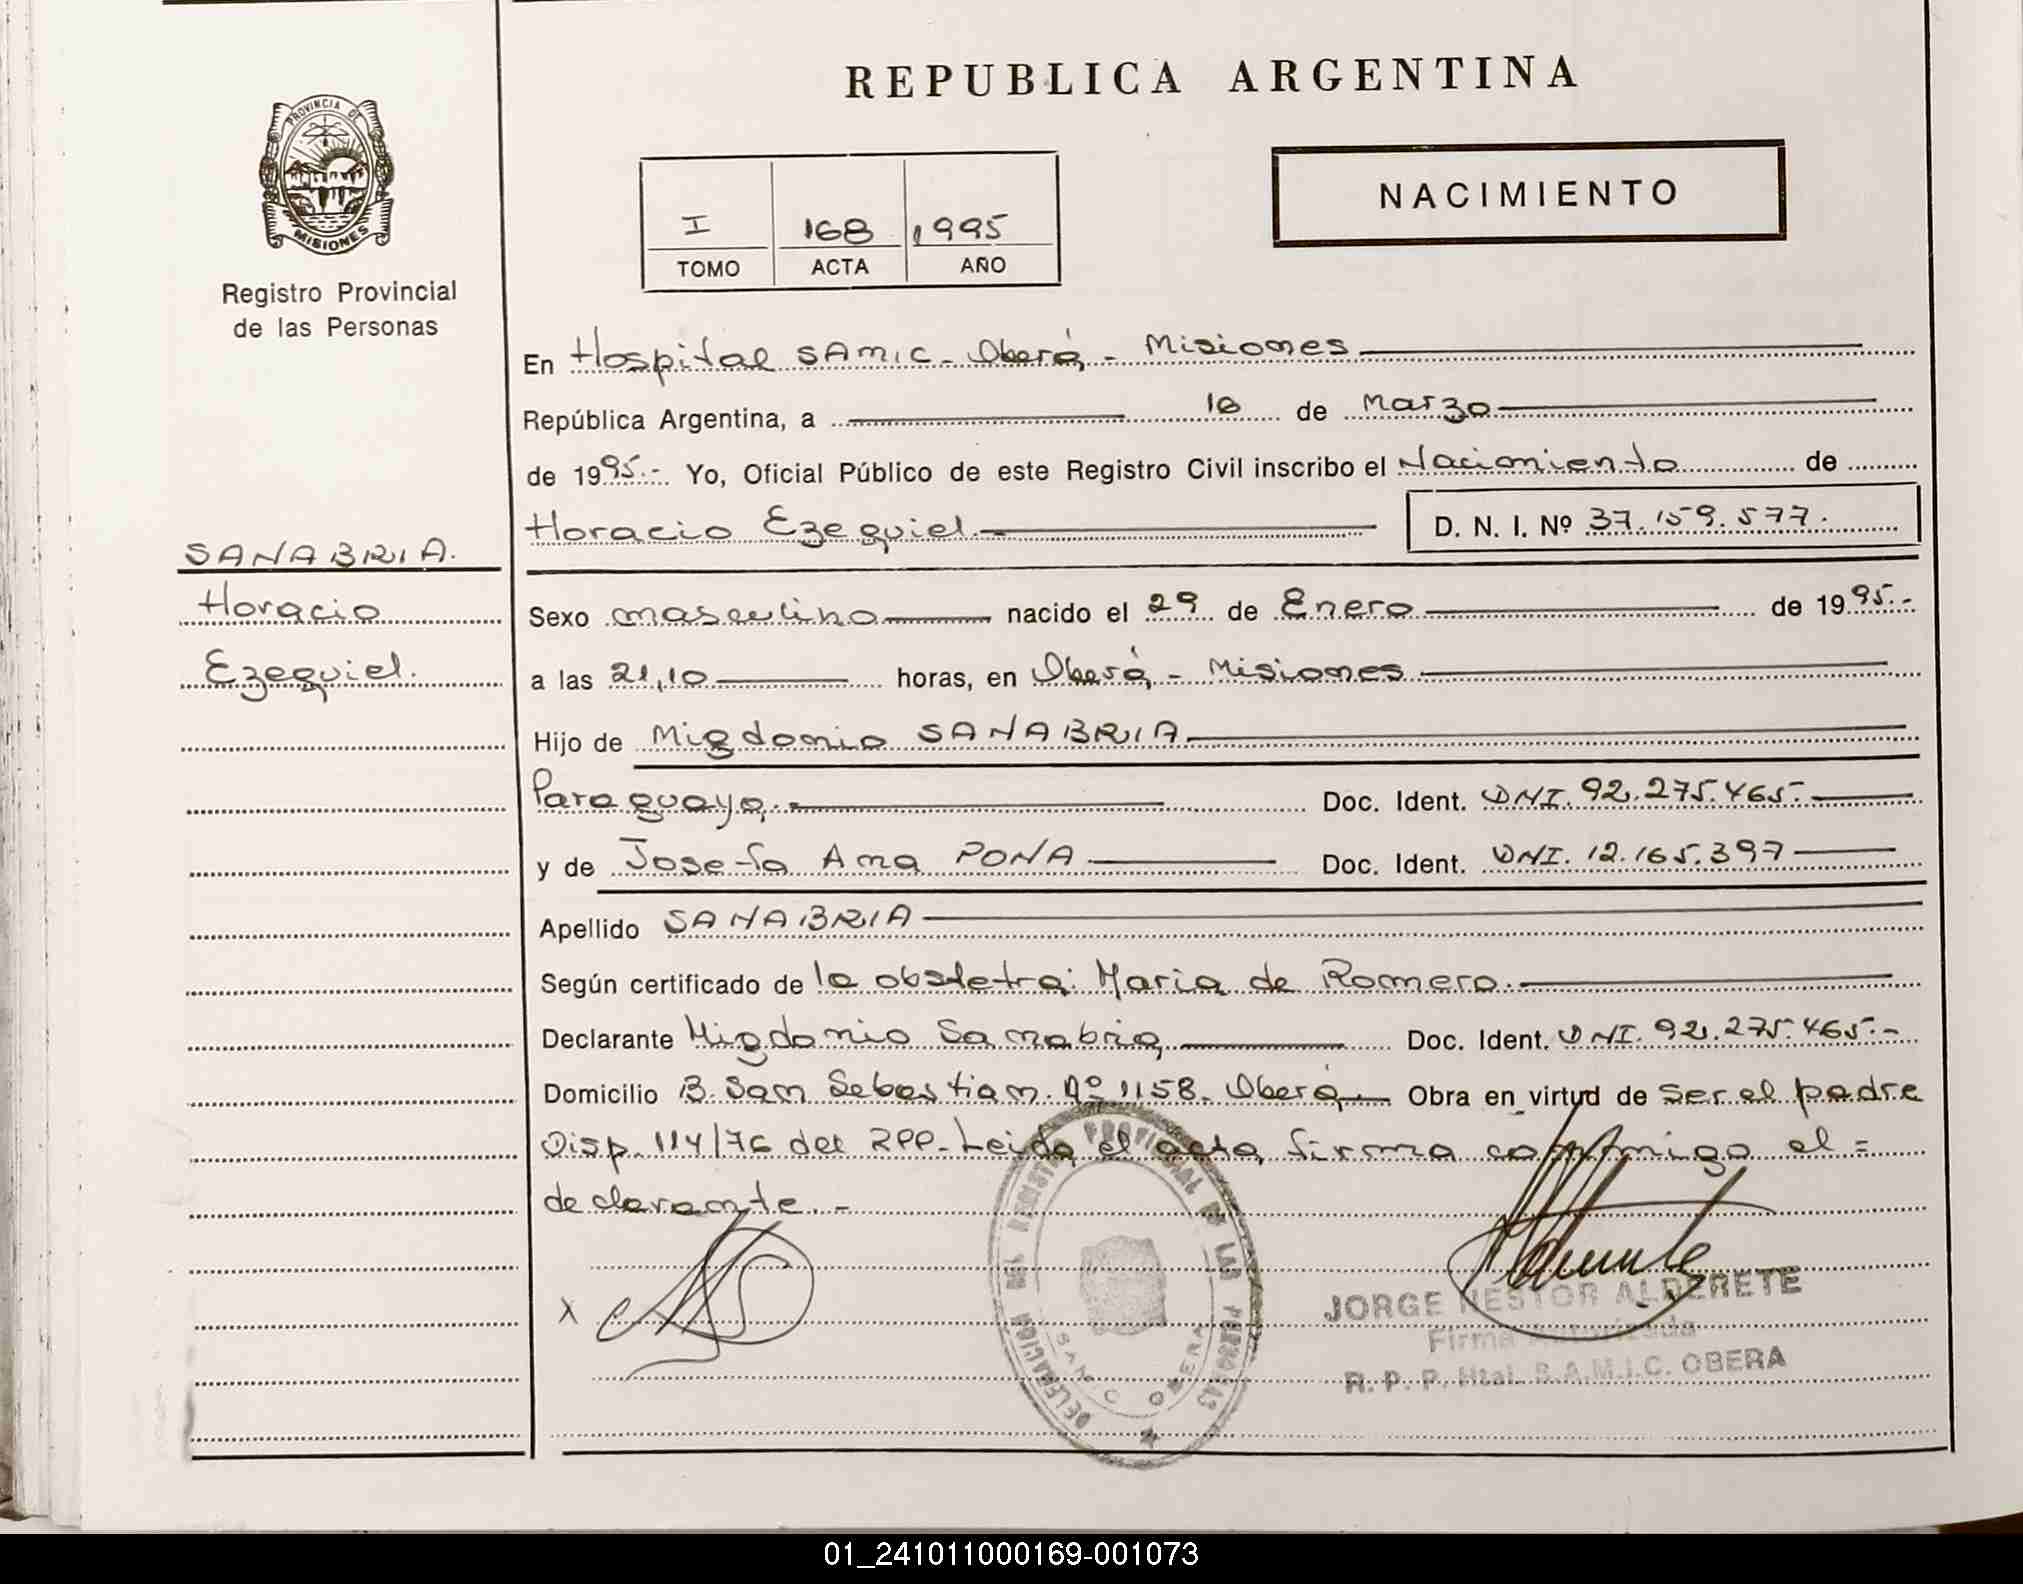 REPUBLICA ARGENTINA
PROVINCIA DE
MISIONES
Registro Provincial
de las Personas
NACIMIENTO
I 168 1995
TOMO ACTA AÑO
En Hospital SAMIC - Oberá, - Misiones
República Argentina, a 10 de Marzo
de 1995.- Yo, Oficial Público de este Registro Civil inscribo el Nacimiento de
Horacio Ezequiel. D. N. I. Nº 37.159.577.
SANABRIA.
Horacio
Ezequiel.
Sexo masculino nacido el 29 de Enero de 1995.-
a las 21,10 horas, en Oberá, - Misiones
Hijo de Migdonio SANABRIA
Paraguayo, Doc. Ident. DNI. 92.275.465.-
y de Josefa Ana PONA Doc. Ident. DNI. 12.165.397
Apellido SANABRIA
Según certificado de la obstetra: Maria de Romero.
Declarante Migdonio Sanabria, Doc. Ident. DNI. 92.275.465.-
Domicilio B. San Sebastian. Nº 1158. Oberá, Obra en virtud de ser el padre
Disp. 114/76 del RPP.- Leida el acta, firma conmigo el =
declarante. -
X
DELEGACION DEL REGISTRO PROVINCIAL DE LAS PERSONAS
SAMIC OBERA
JORGE NESTOR ALDERETE
Firma Autorizada
R. P. P. Htal. S.A.M.I.C. OBERA
01_241011000169-001073